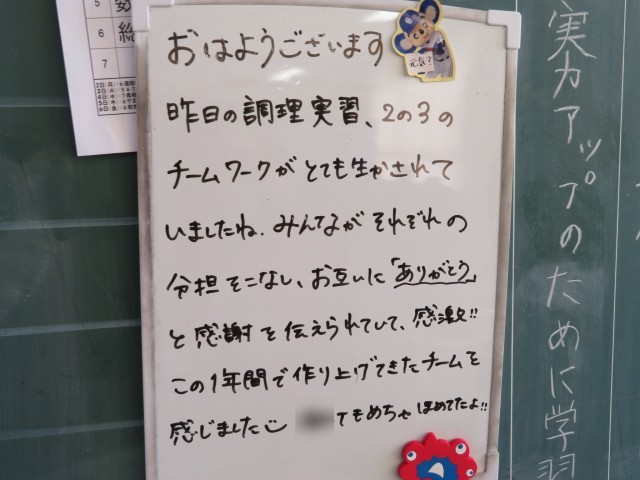 おはようございます
元気?
昨日の調理実習、2の3の
チームワークがとても生かされて
いましたね。みんながそれぞれの
分担をこなし、お互いに「ありがとう」
と感謝を伝えられていて、感激!!
この1年間で作り上げてきたチームを
感じました
てもめちゃほめてたよ!!
実力アップのために学習
5 数
6 総
7